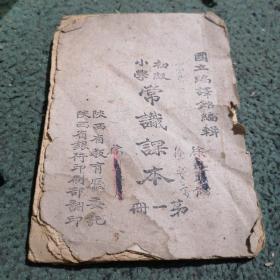 國立編譯館編輯
初級
小學
常識課本
第一冊
陝西省教育廳委託
陝西省銀行印刷部翻印